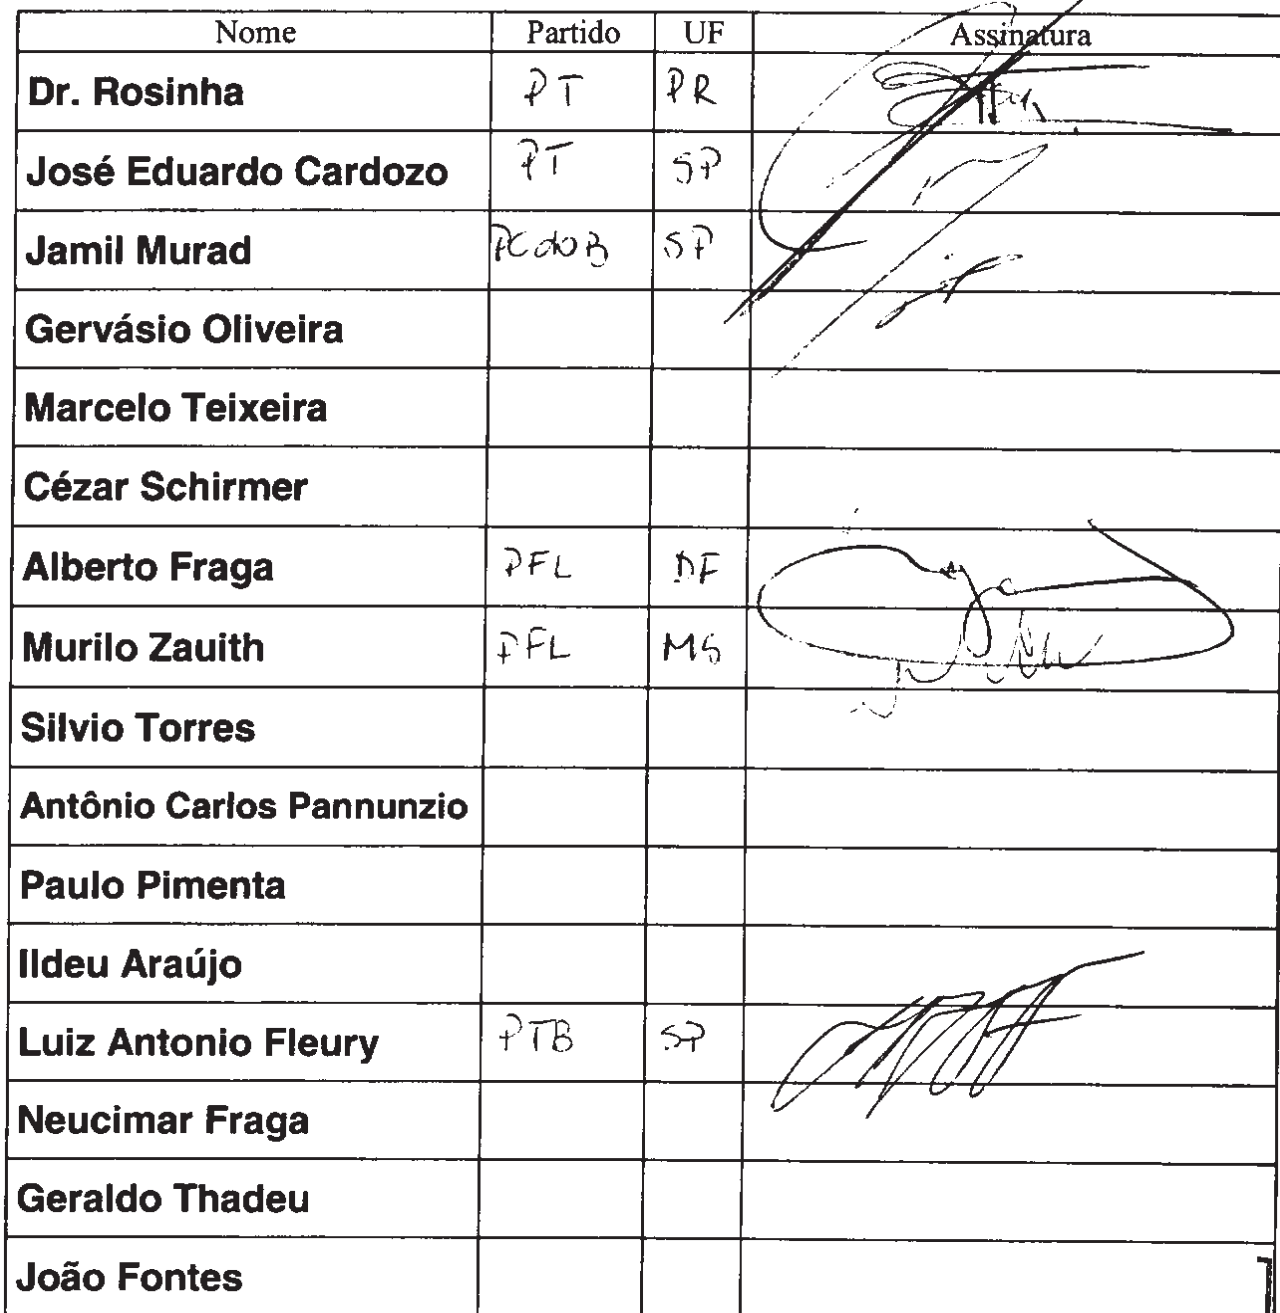 Nome Partido UF Assinatura
Dr. Rosinha PT PR
José Eduardo Cardozo PT SP
Jamil Murad PCdoB SP
Gervásio Oliveira
Marcelo Teixeira
Cézar Schirmer
Alberto Fraga PFL DF
Murilo Zauith PFL MS
Silvio Torres
Antônio Carlos Pannunzio
Paulo Pimenta
Ildeu Araújo
Luiz Antonio Fleury PTB SP
Neucimar Fraga
Geraldo Thadeu
João Fontes